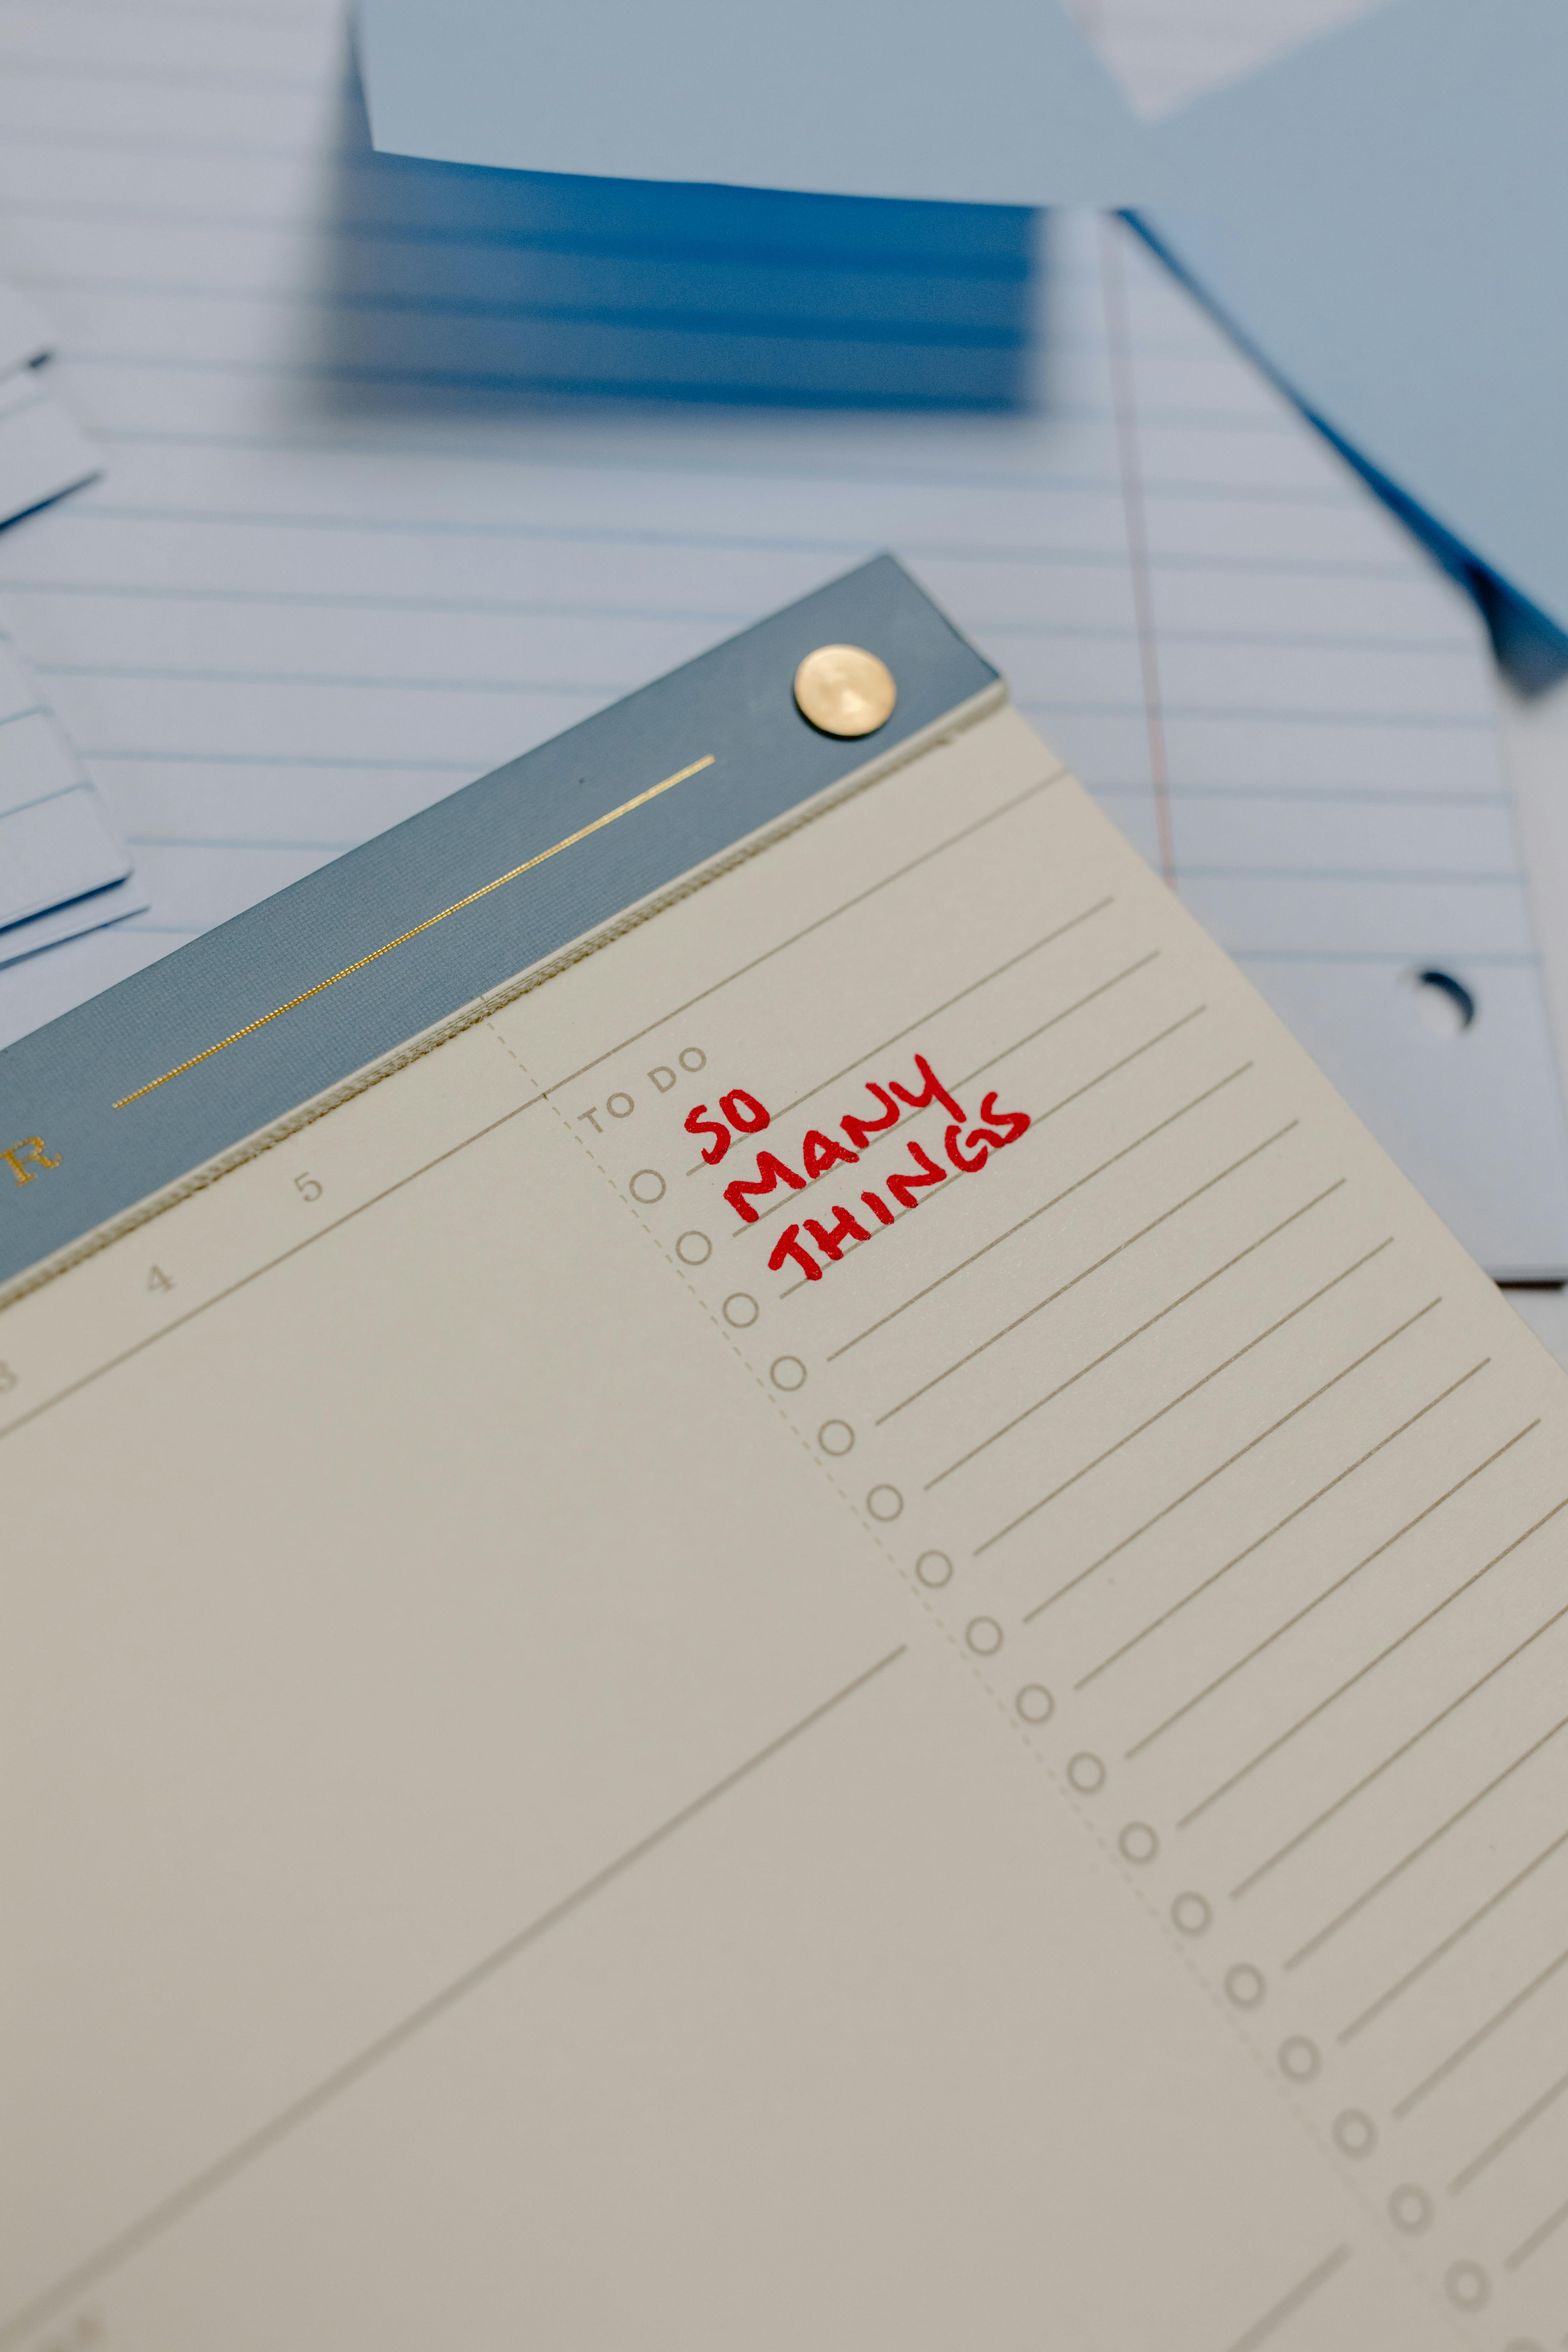 R
3 4 5
TO DO
SO
MANY
THINGS